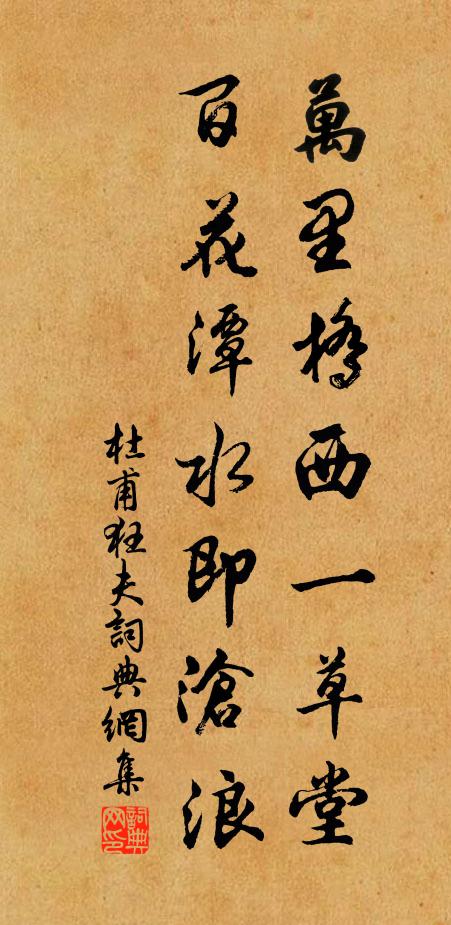 萬里橋西一草堂
百花潭水即滄浪
杜甫狂夫詞典網集
詞典网印